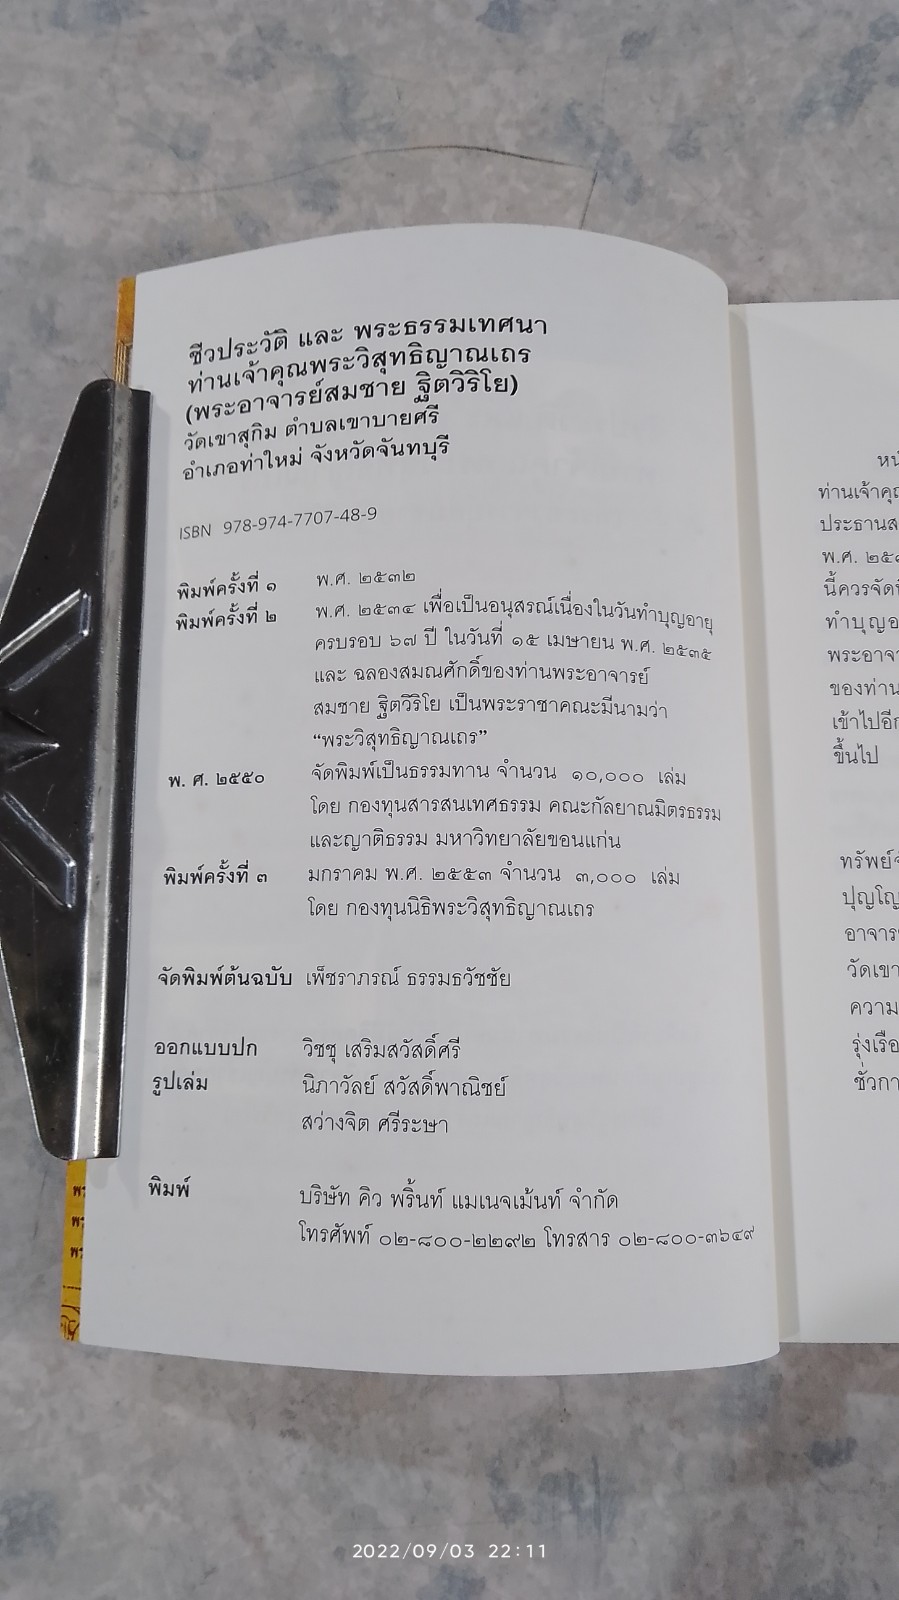 ชีวประวัติ และ พระธรรมเทศนา
ท่านเจ้าคุณพระวิสุทธิญาณเถร
(พระอาจารย์สมชาย ฐิตวิริโย)
วัดเขาสุกิม ตำบลเขาบายศรี
อำเภอท่าใหม่ จังหวัดจันทบุรี
ISBN 978-974-7707-48-9
พิมพ์ครั้งที่ ๑ พ.ศ. ๒๕๓๒
พิมพ์ครั้งที่ ๒ พ.ศ. ๒๕๓๔ เพื่อเป็นอนุสรณ์เนื่องในวันทำบุญอายุ
ครบรอบ ๖๗ ปี ในวันที่ ๑๕ เมษายน พ.ศ. ๒๕๓๕
และ ฉลองสมณศักดิ์ของท่านพระอาจารย์
สมชาย ฐิตวิริโย เป็นพระราชาคณะมีนามว่า
“พระวิสุทธิญาณเถร”
พ. ศ. ๒๕๕๐ จัดพิมพ์เป็นธรรมทาน จำนวน ๑๐,๐๐๐ เล่ม
โดย กองทุนสารสนเทศธรรม คณะกัลยาณมิตรธรรม
และญาติธรรม มหาวิทยาลัยขอนแก่น
พิมพ์ครั้งที่ ๓ มกราคม พ.ศ. ๒๕๕๓ จำนวน ๓,๐๐๐ เล่ม
โดย กองทุนนิธิพระวิสุทธิญาณเถร
จัดพิมพ์ต้นฉบับ เพ็ชราภรณ์ ธรรมธวัชชัย
ออกแบบปก วิชชุ เสริมสวัสดิ์ศรี
รูปเล่ม นิภาวัลย์ สวัสดิ์พาณิชย์
สว่างจิต ศรีระษา
พิมพ์ บริษัท คิว พริ้นท์ แมเนจเม้นท์ จำกัด
โทรศัพท์ ๐๒-๘๐๐-๒๒๙๒ โทรสาร ๐๒-๘๐๐-๓๖๔๙
ท่านเจ้าคุณ
พ.ศ.
นี้ควรจัด
ทำบุญอ
พระอาจา
ของท่าน
เข้าไปอีก
ขึ้นไป
ปุญโญ
อาจาร
วัดเขา
ความ
รุ่งเรือ
ชั่วกา
2022/09/03 22:11